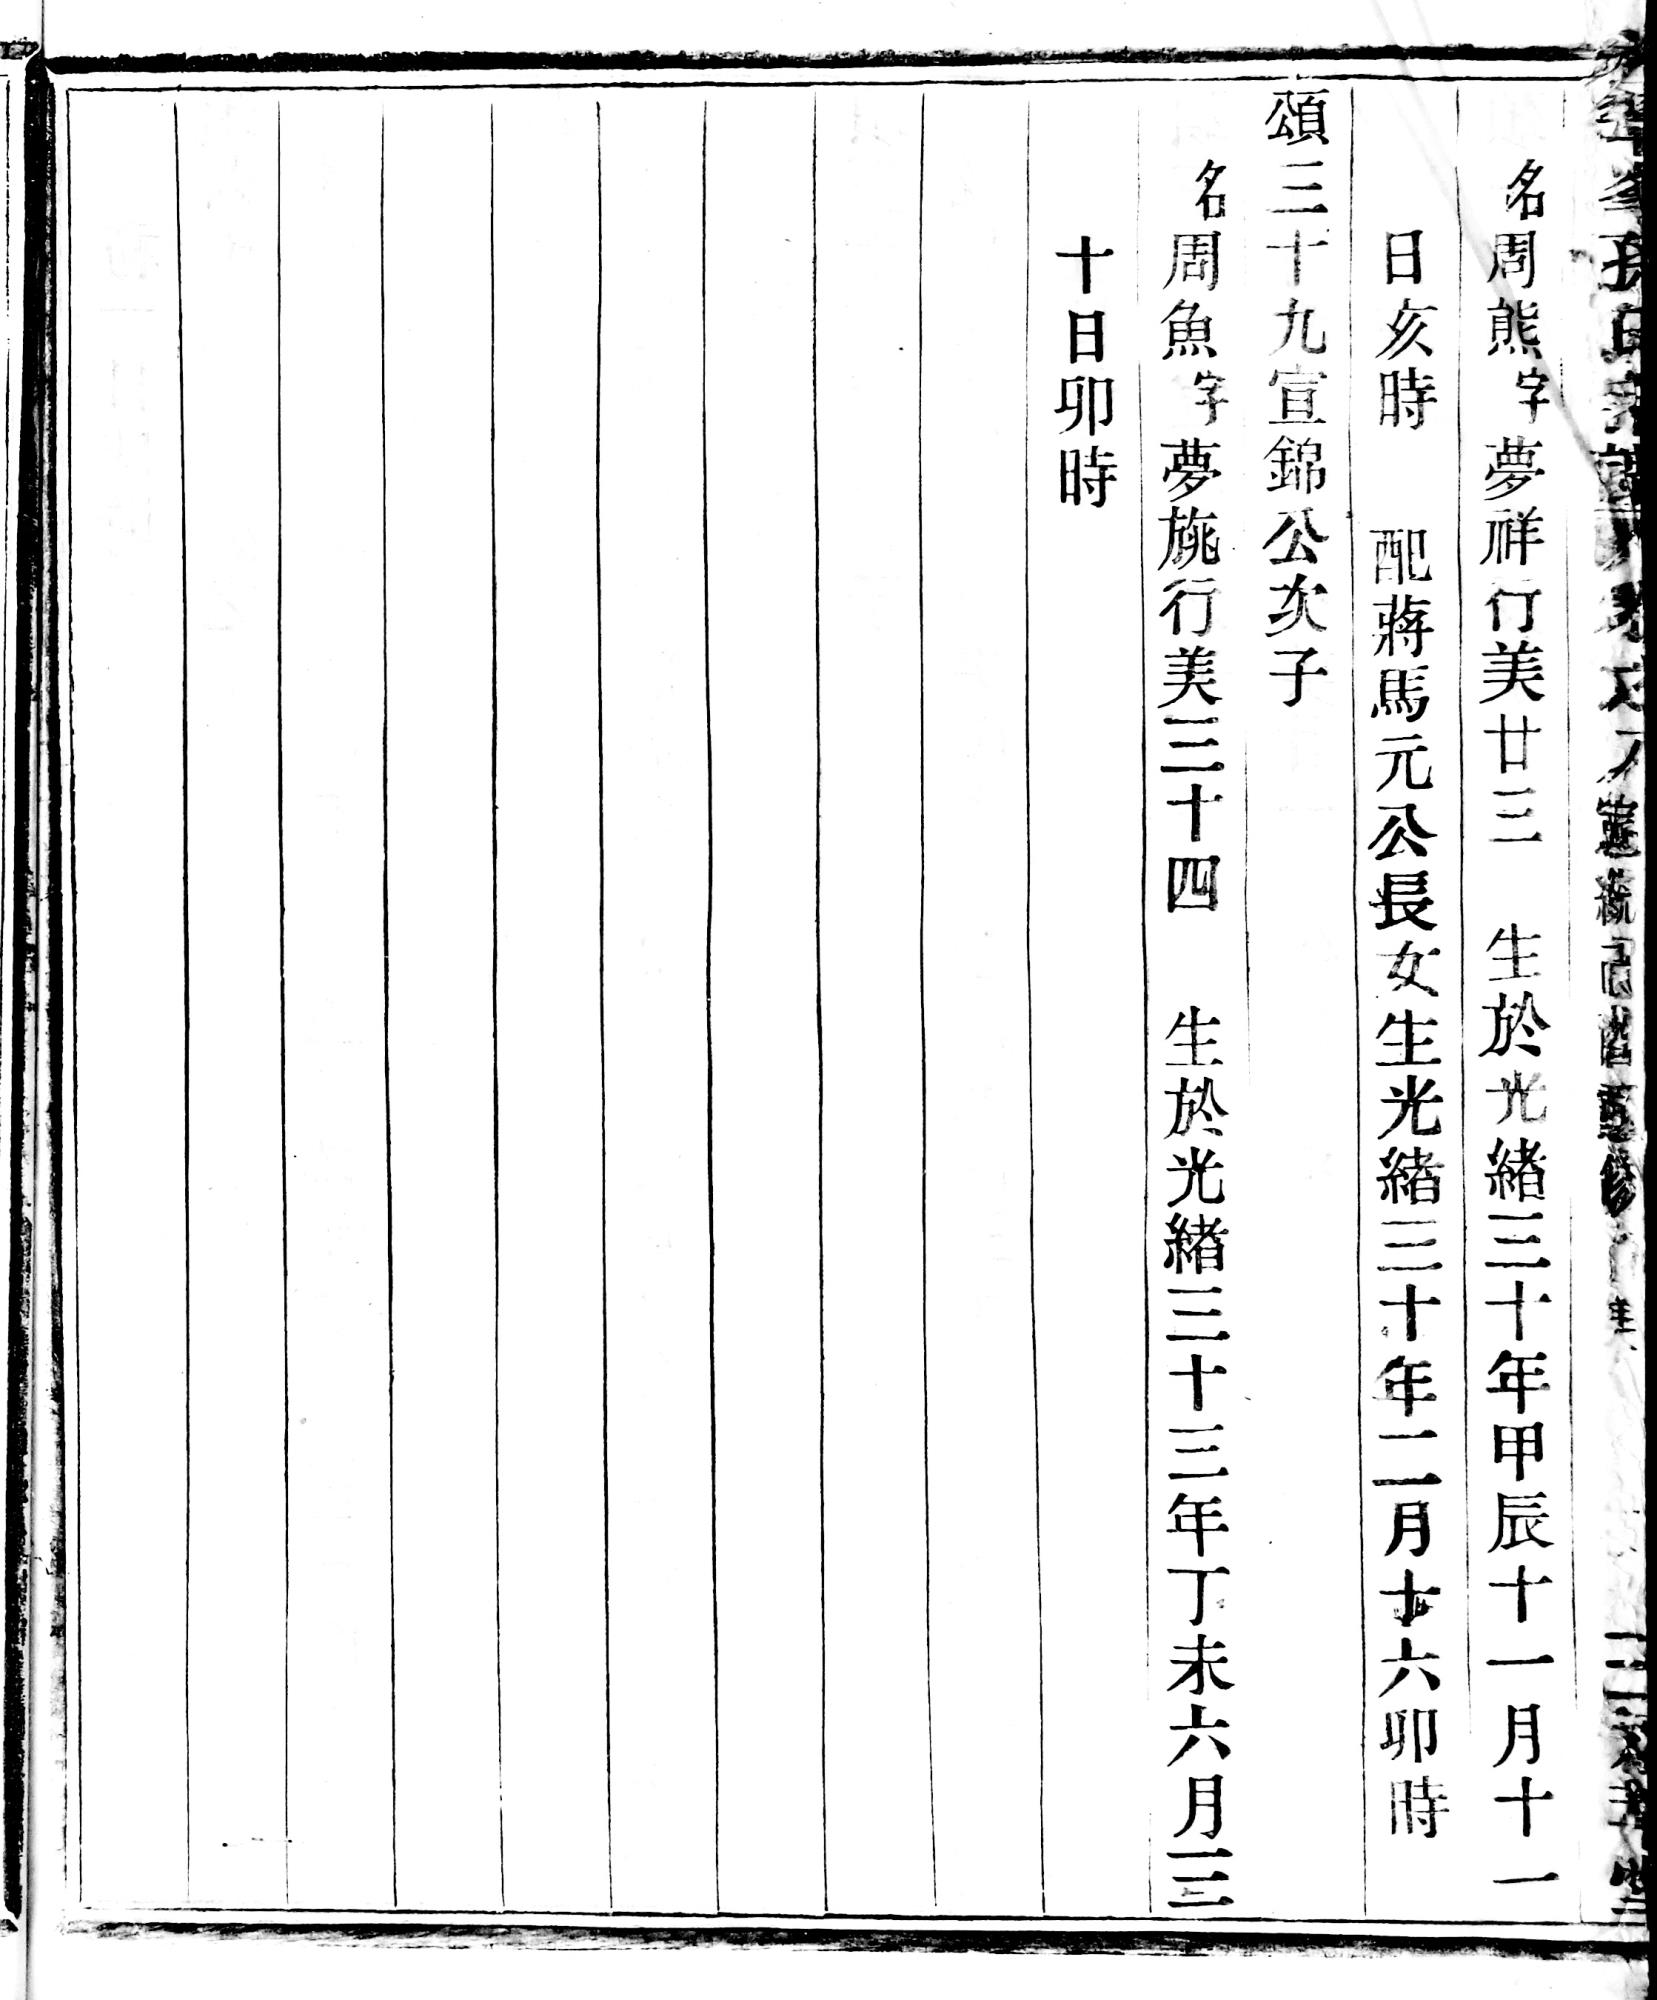 名周熊字夢祥行美廿三　生於光緒三十年甲辰十一月十一
日亥時　配蔣馬元公長女生光緒三十年二月十六卯時
頌三十九宣錦公次子
名周魚字夢旐行美三十四　生於光緒三十三年丁未六月三
十日卯時